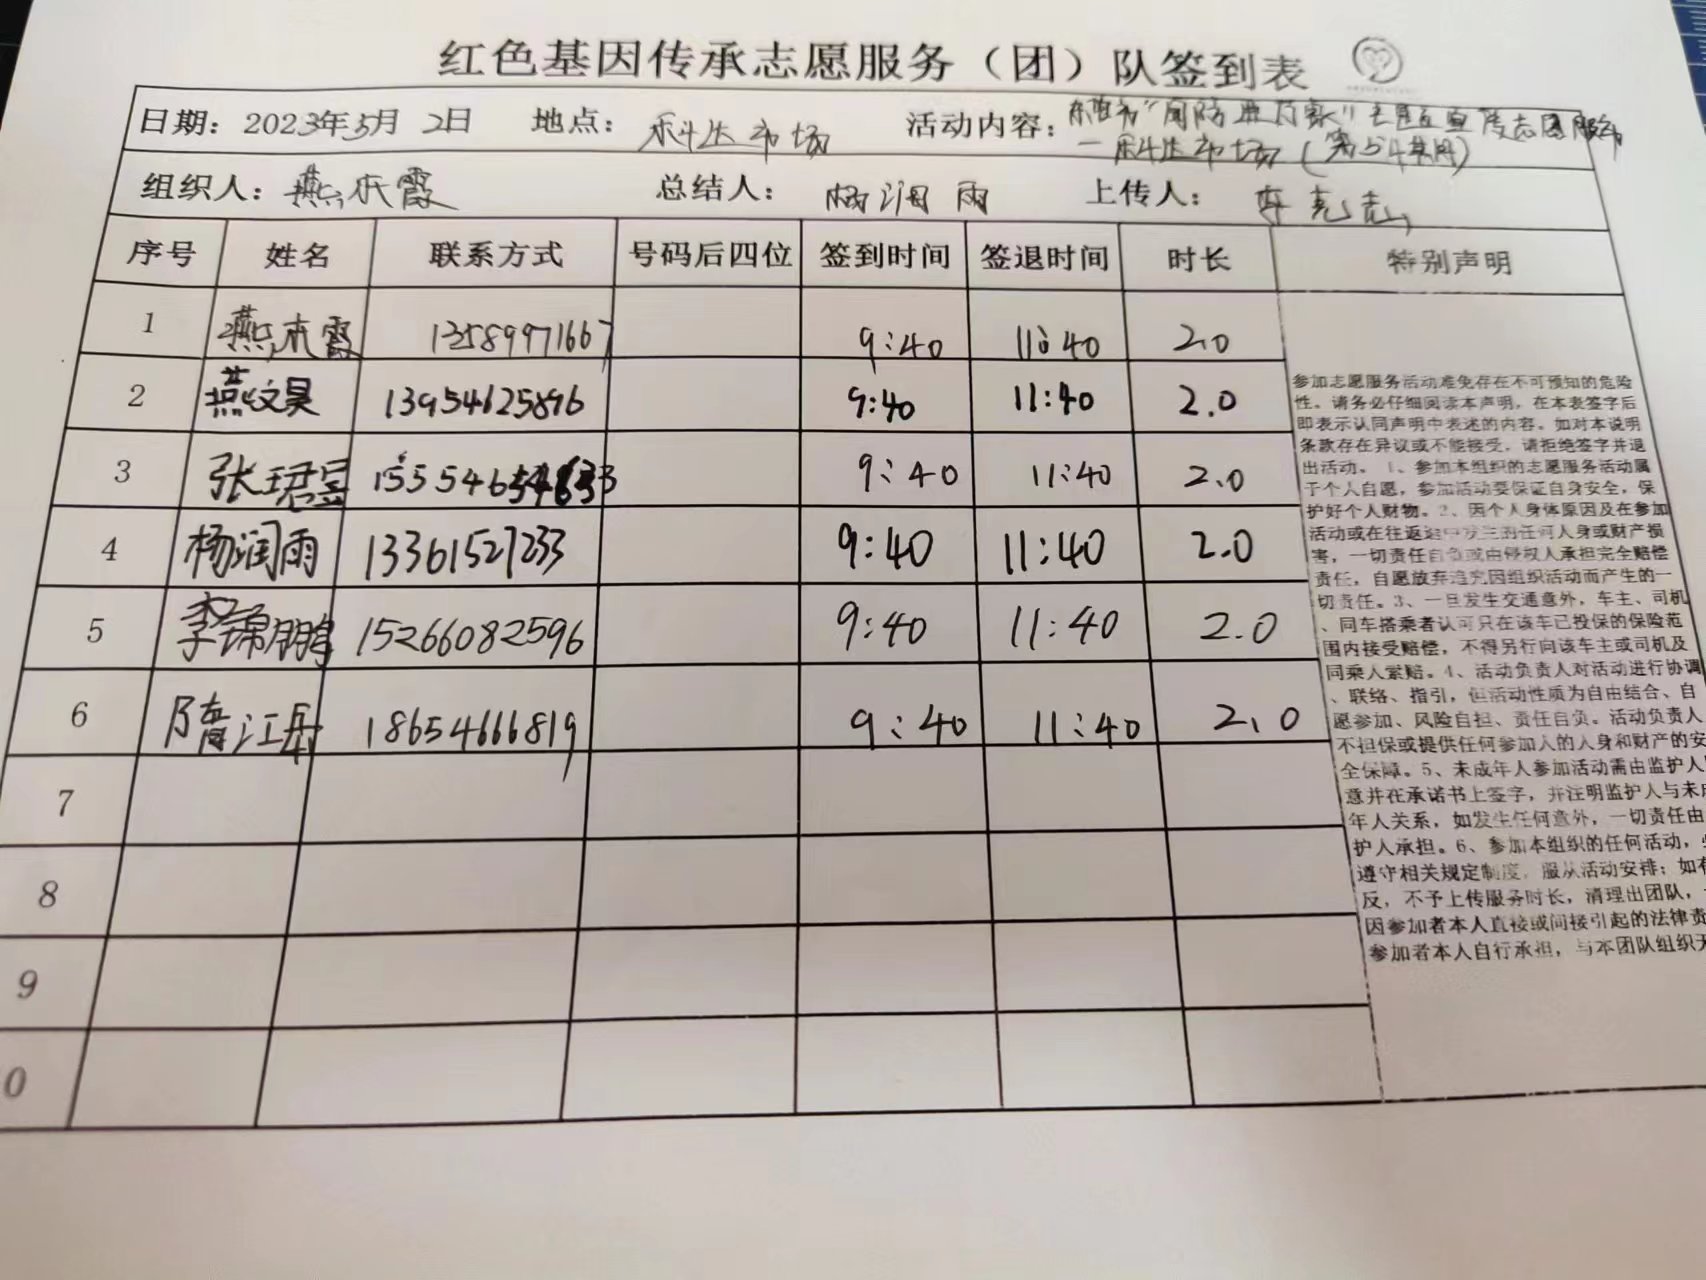 红色基因传承志愿服务（团）队签到表
日期：2023年5月2日 地点：科达市场 活动内容：
科达市场
组织人：燕木霞 总结人：杨润雨 上传人：
序号 姓名 联系方式 号码后四位 签到时间 签退时间 时长 特别声明
1 燕木霞 13589971667 9:40 11:40 2.0
2 燕文昊 13954625896 9:40 11:40 2.0
3 张珺 9:40 11:40 2.0
4 杨润雨 13361527233 9:40 11:40 2.0
5 李锦鹏 15266082596 9:40 11:40 2.0
6 隋江 18654666819 9:40 11:40 2.0
7
8
9
0
参加志愿服务活动难免存在不可预知的危险
性。请务必仔细阅读本声明，在本表签字后
即表示认同声明中表述的内容。如对本说明
条款存在异议或不能接受，请拒绝签字并退
出活动。1、参加本组织的志愿服务活动属
于个人自愿，参加活动要保证自身安全，保
护好个人财物。2、因个人身体原因及在参加
活动或在往返途中发生的任何人身或财产损
害，一切责任自负或由侵权人承担完全赔偿
责任，自愿放弃追究因组织活动而产生的一
切责任。3、一旦发生交通意外，车主、司机
、同车搭乘者认可只在该车已投保的保险范
围内接受赔偿，不得另行向该车主或司机及
同乘人索赔。4、活动负责人对活动进行协调
、联络、指引，但活动性质为自由结合、自
愿参加、风险自担、责任自负。活动负责人
不担保或提供任何参加人的人身和财产的安
全保障。5、未成年人参加活动需由监护人
意并在承诺书上签字，并注明监护人与未
年人关系，如发生任何意外，一切责任由
护人承担。6、参加本组织的任何活动，
遵守相关规定制度，服从活动安排；如有
反，不予上传服务时长，清理出团队，
因参加者本人直接或间接引起的法律责
参加者本人自行承担，与本团队组织